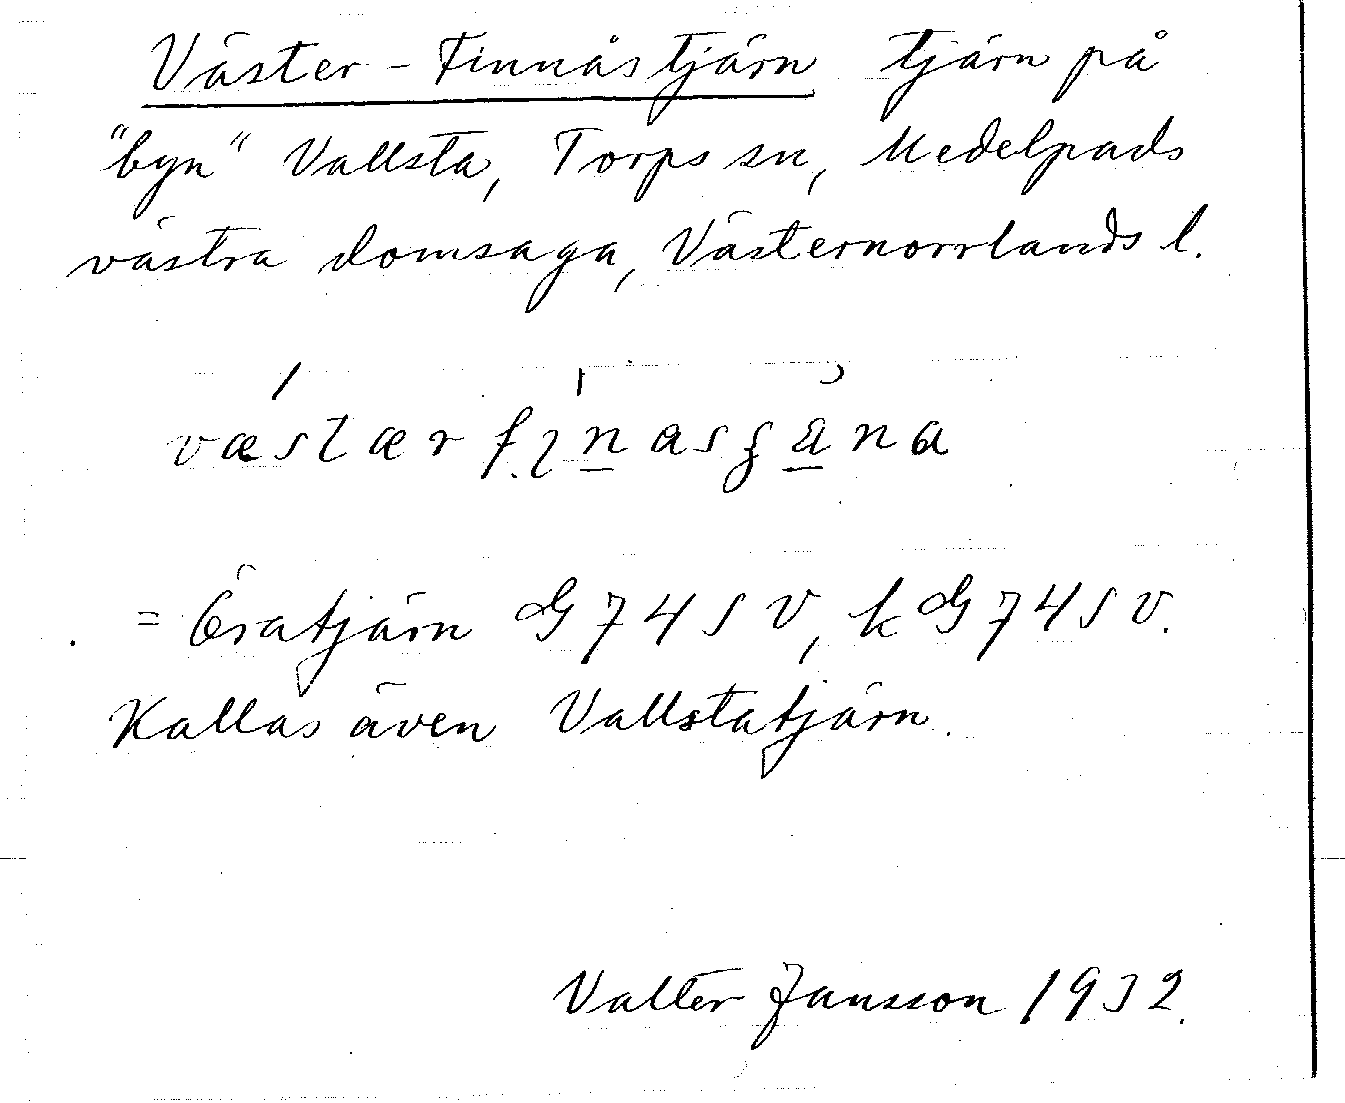 Väster-Finnåstjärn tjärn på
"byn" Vallsta, Torps sn, Medelpads
västra domsaga, Västernorrlands l.
= Öratjärn G74SV, kG74SV.
Kallas även Vallstatjärn.
Valter Jansson 1932.